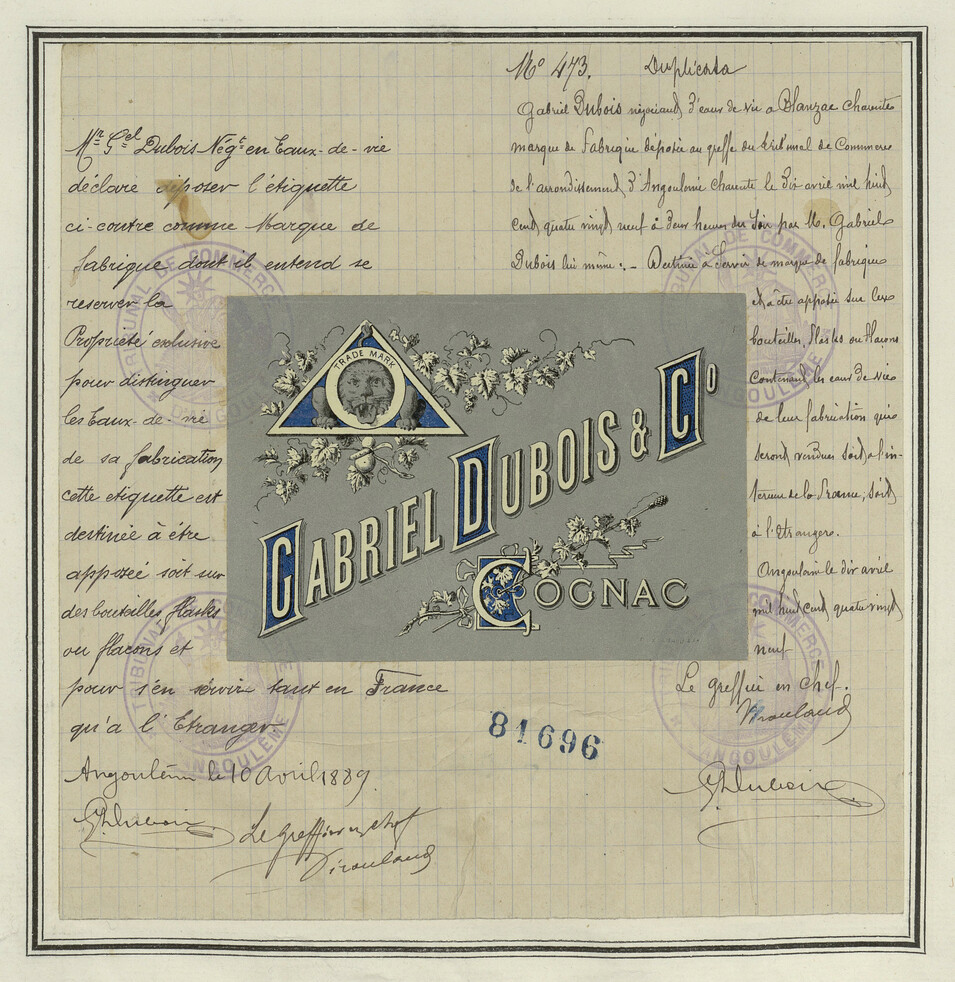 Mr Gel Dubois Négt en Eaux-de-vie
déclare déposer l'étiquette
ci-contre comme Marque de
fabrique dont il entend se
reserver la
Propriété exclusive
pour distinguer
les Eaux-de-vie
de sa fabrication
cette etiquette est
destinée à être
apposée soit sur
des bouteilles, flasks
ou flacons et
pour s'en servir tant en France
qu'a l'Etranger
Angoulême le 10 Avril 1889.
GDubois
Le greffier en chef
No 473. Duplicata
Gabriel Dubois négociant d'eaux de vie a Blanzac Charente
marque de Fabrique déposée au greffe du tribunal de Commerce
de l'arrondissement d'Angoulême Charente le dix avril mil huit
cent quatre vingt neuf à deux heures du soir par M. Gabriel
Dubois lui même :- Destinée à servir de marque de fabrique
et à être apposée sur les
bouteilles, flasks ou flacons
contenant les eaux de vie
de leur fabrication qui
seront vendues soit à l'in-
terieur de la France, soit
à l'Etranger.
Angoulême le dix avril
mil huit cent quatre vingt
neuf
Le greffier en chef.
GDubois
TRADE MARK
GABRIEL DUBOIS & Co
COGNAC
81696
TRIBUNAL DE COMMERCE
ANGOULÊME
TRIBUNAL DE COMMERCE
ANGOULÊME
TRIBUNAL DE COMMERCE
ANGOULÊME
TRIBUNAL DE COMMERCE
ANGOULÊME